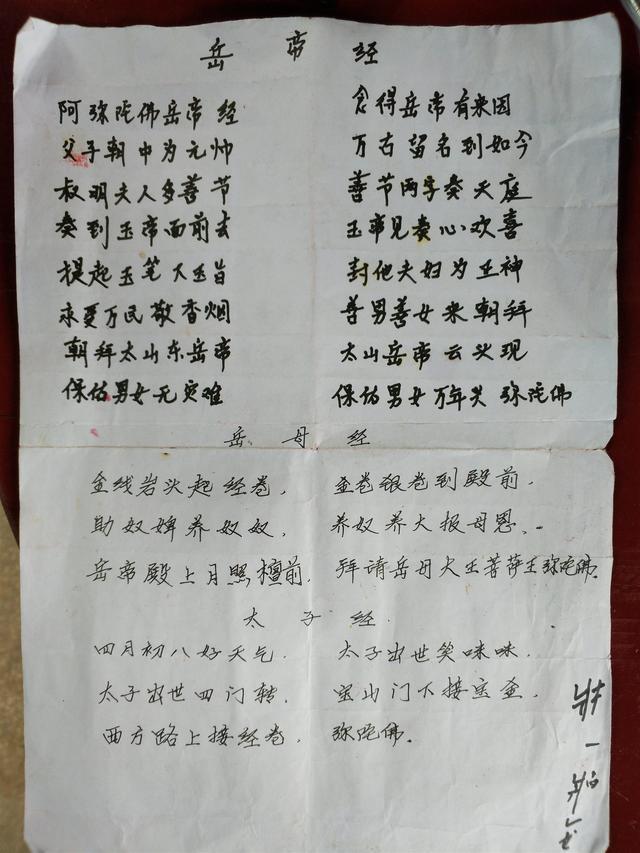 岳帝经
阿弥陀佛岳帝经 念得岳帝有来因
父子朝中为元帅 万古留名到如今
叔明夫人多善节 善节两字奏天庭
奏到玉帝面前去 玉帝见奏心欢喜
提起玉笔下玉旨 封他夫妇为正神
永受万民敬香烟 善男善女来朝拜
朝拜太山东岳帝 太山岳帝云头现
保估男女无灾难 保估男女万年兴 弥陀佛
岳母经
金线岩头起经卷, 金卷银卷到殿前,
助奴婢养奴奴, 养奴养大报母恩、
岳帝殿上月照檀前, 拜请岳母大王菩萨王弥陀佛。
太子经
四月初八好天气, 太子出世笑咪咪,
太子出世四门转, 宝山门下接宝金,
西方路上接经卷, 弥陀佛。